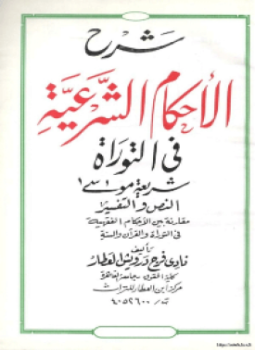 شرح
الأحكام الشرعية
في التوراة
شريعة موسى
النص والتفسير
مقارنة بين الأحكام الفقهية
في التوراة والقرآن والسنة
تأليف
نادي فرج درويش العطار
كلية الحقوق - جامعة القاهرة
مركز ابن العطار للتراث
ت / ٤٠٥٢٦٠٠